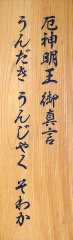 厄神明王 御真言
うんだき うんじゃく そわか